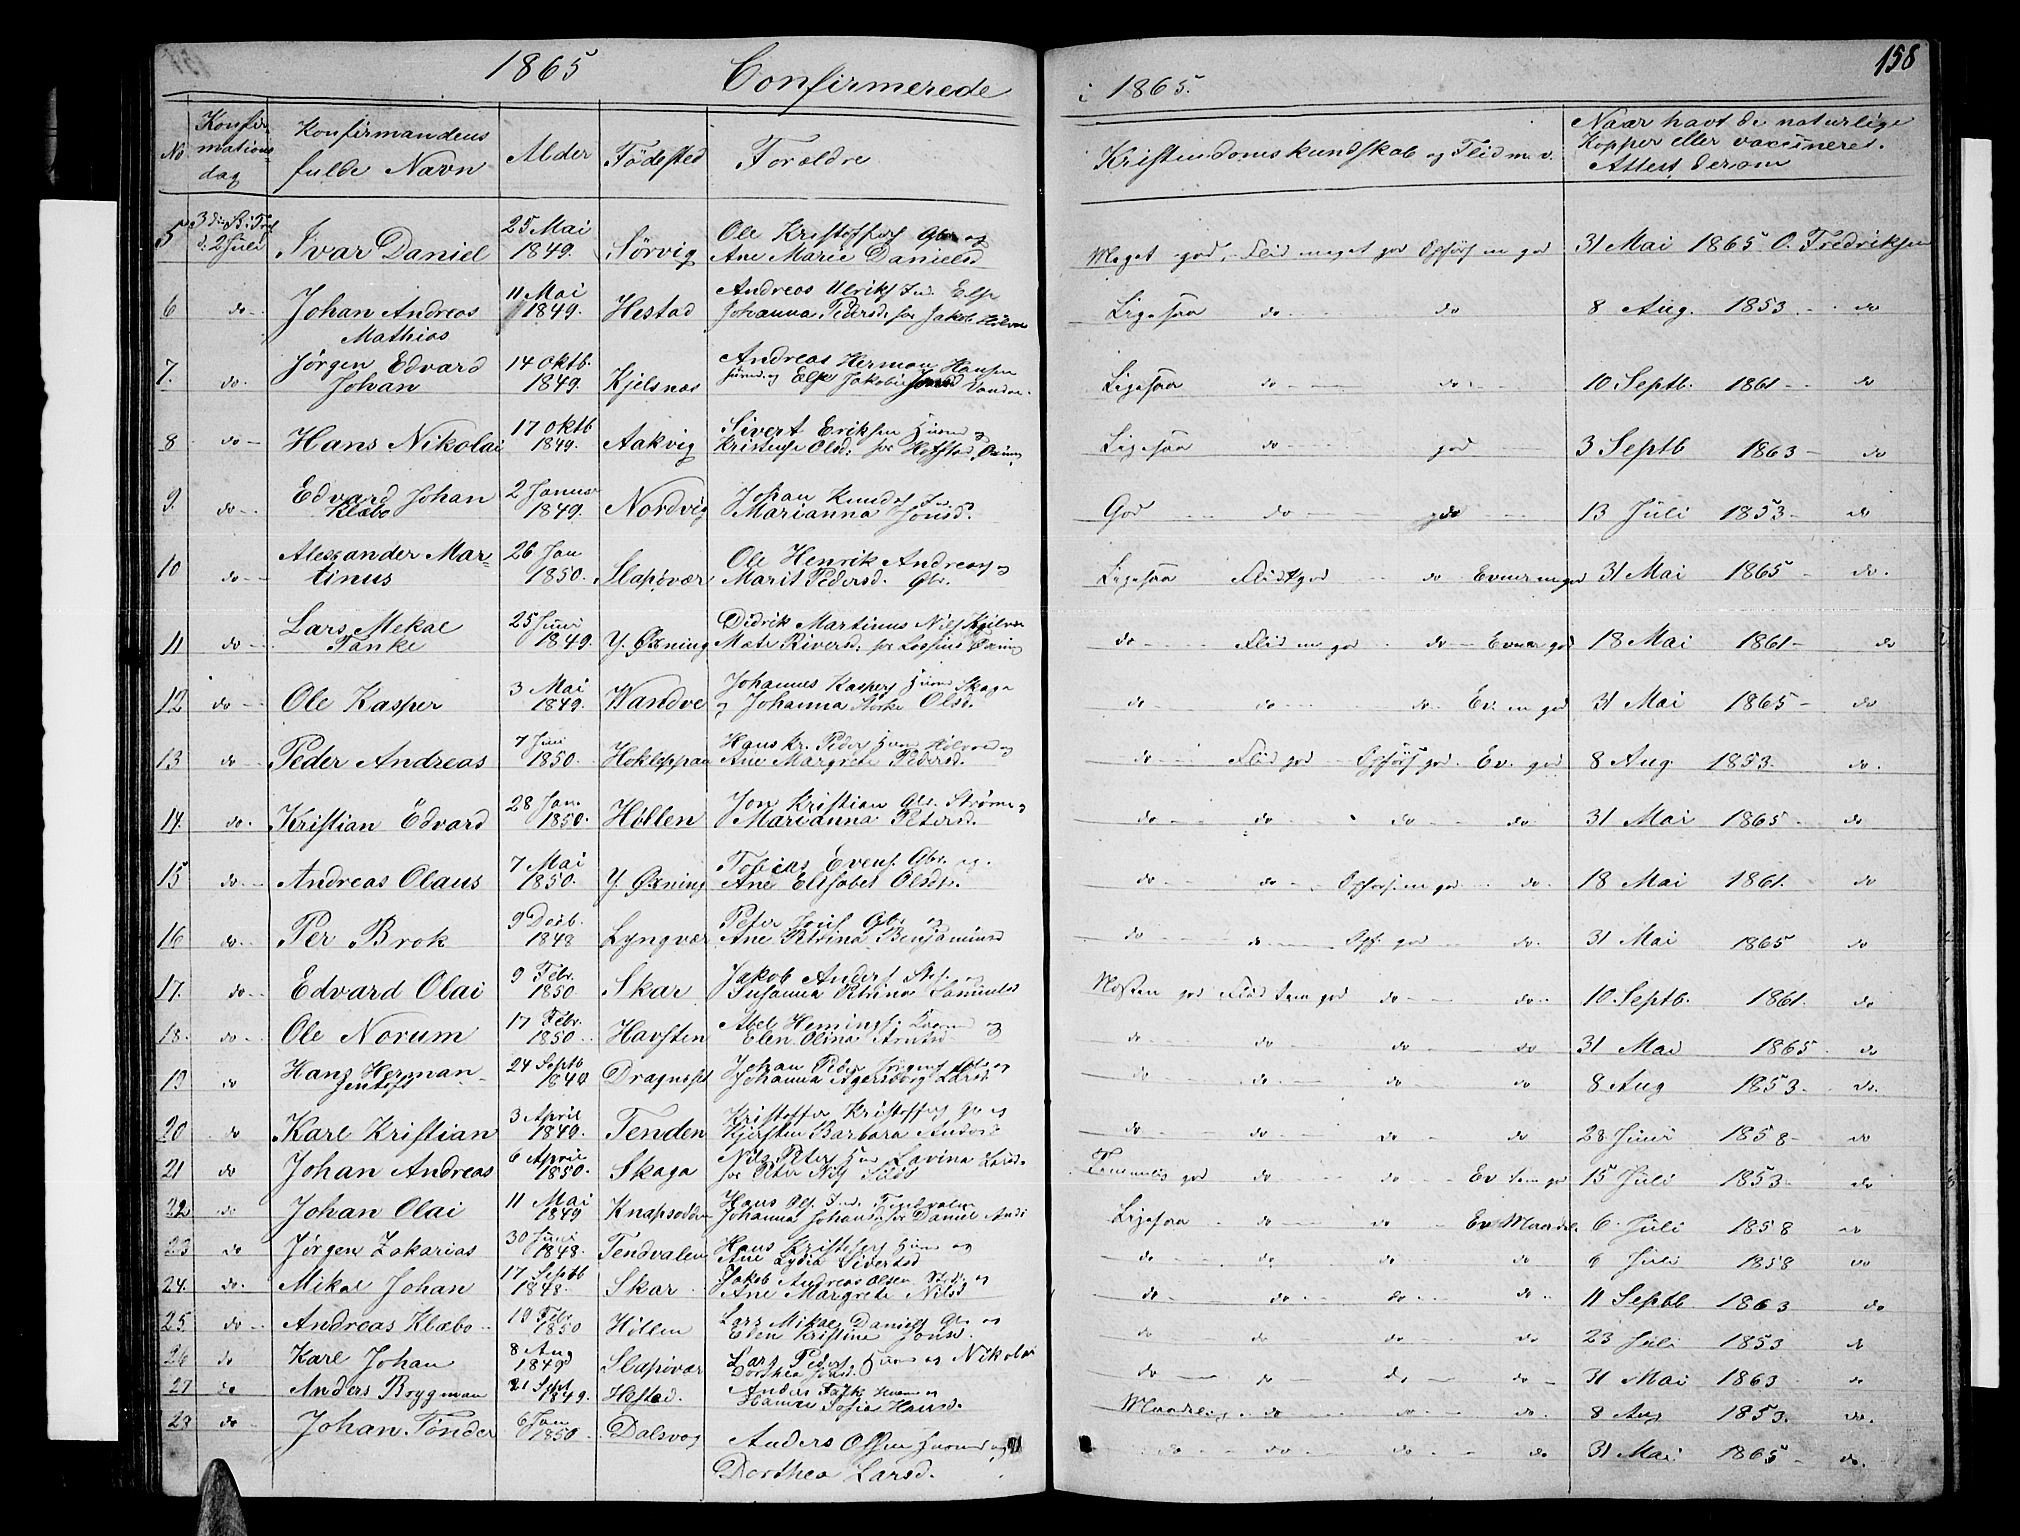 158
1865 Confirmerede i 1865.
No Konfirmations dag Konfirmandens fulde Navn Alder Födested Forældre Kristendomskundskab og Flid m. v. Naar havt de naturlige Kopper eller vaccineret. Attest derom
5 d. 2 Juli Ivar Daniel 25 Mai 1849. Sörvig Ole Kristoffers Gbr og Ane Marie Danielsd Meget god, Flid meget god Opförs m god 31 Mai 1865 O. Fredriksen
6 do Johan Andreas Mathias 11 Mai 1849. Hestad Andreas Ulriks Else Johanna Pedersd. for Jakob Ligesaa do do 8 Aug. 1853 do
7. do. Jörgen Edvard Johan 14 Oktb. 1849. Kjelsnas Andreas Herman Hansen og Else Jakobie Ligesaa do do 10 Septb. 1861 do
8 do Hans Nikolai 17 Oktb 1849. Aakvig Sivert Eriksen og Olsd. for Hofstad Ligesaa do god 3 Septb 1863 do
9. do Edvard Johan Klæbo 2 Januar 1849. Nordvig Johan Knuds Marianna Jonsd. God do do 13 Juli 1853 do
10 do Alexander Martinus 26 Jan 1850. Slapövær Ole Henrik Andreas og Marit Pedersd. Gbr. Ligesaa Flid god do Evner m god 31 Mai 1865 do.
11 do Lars Mekal Tanke 25 Juni 1849. Y. Øxning Didrik Martinus Nils Mate Riversd. for do Flid m god do Evner god 18 Mai 1861 do
12 do Ole Kasper 3 Mai 1849. Wandve Johannes Kaspers Skaga og Johanna Olsd. do do do Ev. m god 31 Mai 1865 do
13 do Peder Andreas 7 Juni 1850. Hokleppan Hans Kr. Peders og Ane Margrete Pedersd. do Flid god Opförs god. Ev. god 8 Aug. 1853. do.
14. do. Kristian Edvard 28 Jan. 1850. Höllen Jon Kristian Gbr. Ströme og Marianna Petersd. do do do do 31 Mai 1865 do
15 do Andreas Olaus 7 Mai 1850. Y. Øxning Tobias Evens. Gbr. og Ane Elisabet Olsdtr. do do Opförs. m god do. 18 Mai 1861. do
16 do. Per Brok 9 Decb. 1848 Lyngvær Peter Gbr og Ane Petrina Benjaminsd do do Opf. god do. 31 Mai 1865 do
17. do Edvard Olai 9 Febr. 1850 Skar Jakob Anders og Susanna Petrina Samuelsd Næsten god Flid tem god do do 10 Septb. 1861. do
18. do Ole Norum 17 Febr. 1850 Havsten Abel Hemings og Elen Olina Arntsd do do do do 31 Mai 1865. do
19 do Hans Herman Jentoft 24 Septb 1849 Dragnespt Johan Peder og Johanna Agersborg Larsd do do do do 8 Aug 1853. do.
20 do Karl Kristian 3 April 1849. Tenden Kristoffer Kristoffers Gbr og Kjersten Barbara do do do do 28 Juni 1858 do
21 do Johan Andreas 6 April 1850. Skaga Nils Peters Lovina Larsd. for Peter Nils Temmelig god do do Ev tem god 15 Juli 1853 do
22 do Johan Olai 11 Mai 1849 Knapsodden Hans Ols Johanna Johansd. for Daniel Ligesaa do do Ev Maadel. 6 Juli 1858 do
23 do Jörgen Zakarias 30 Juni 1848. Tendvalen Hans Kristofers og Ane Lydia Sivertsd do do do do 6 Juli 1858 do
24. do. Mikal Johan 17 Septb 1848. Skar Jakob Andreas Olsen og Ane Margrete Nilsd do do do do. 11 Septb 1863 do
25 do Andreas Klæbo 19 Febr. 1850 Höllen Lars Mikal Daniels Gbr og Elen Kristine Jonsd. do do do do 23 Juli 1853 do
26 do Karl Johan 8 Aug 1849 Slapövær Lars Peders og Nikoline Dorthea do do do do 31 Mai 1863 do
27 do Anders Brygman 21 Sept 1849. Hestad. Anders Falk og Sofia Hansd. Maadelig do do do. 8 Aug 1853. do.
28 do Johan Tönder 6 Jan 1850 Dalsvog Anders Olsen og Dorthea Larsd. do do do do 31 Mai 1865 do.